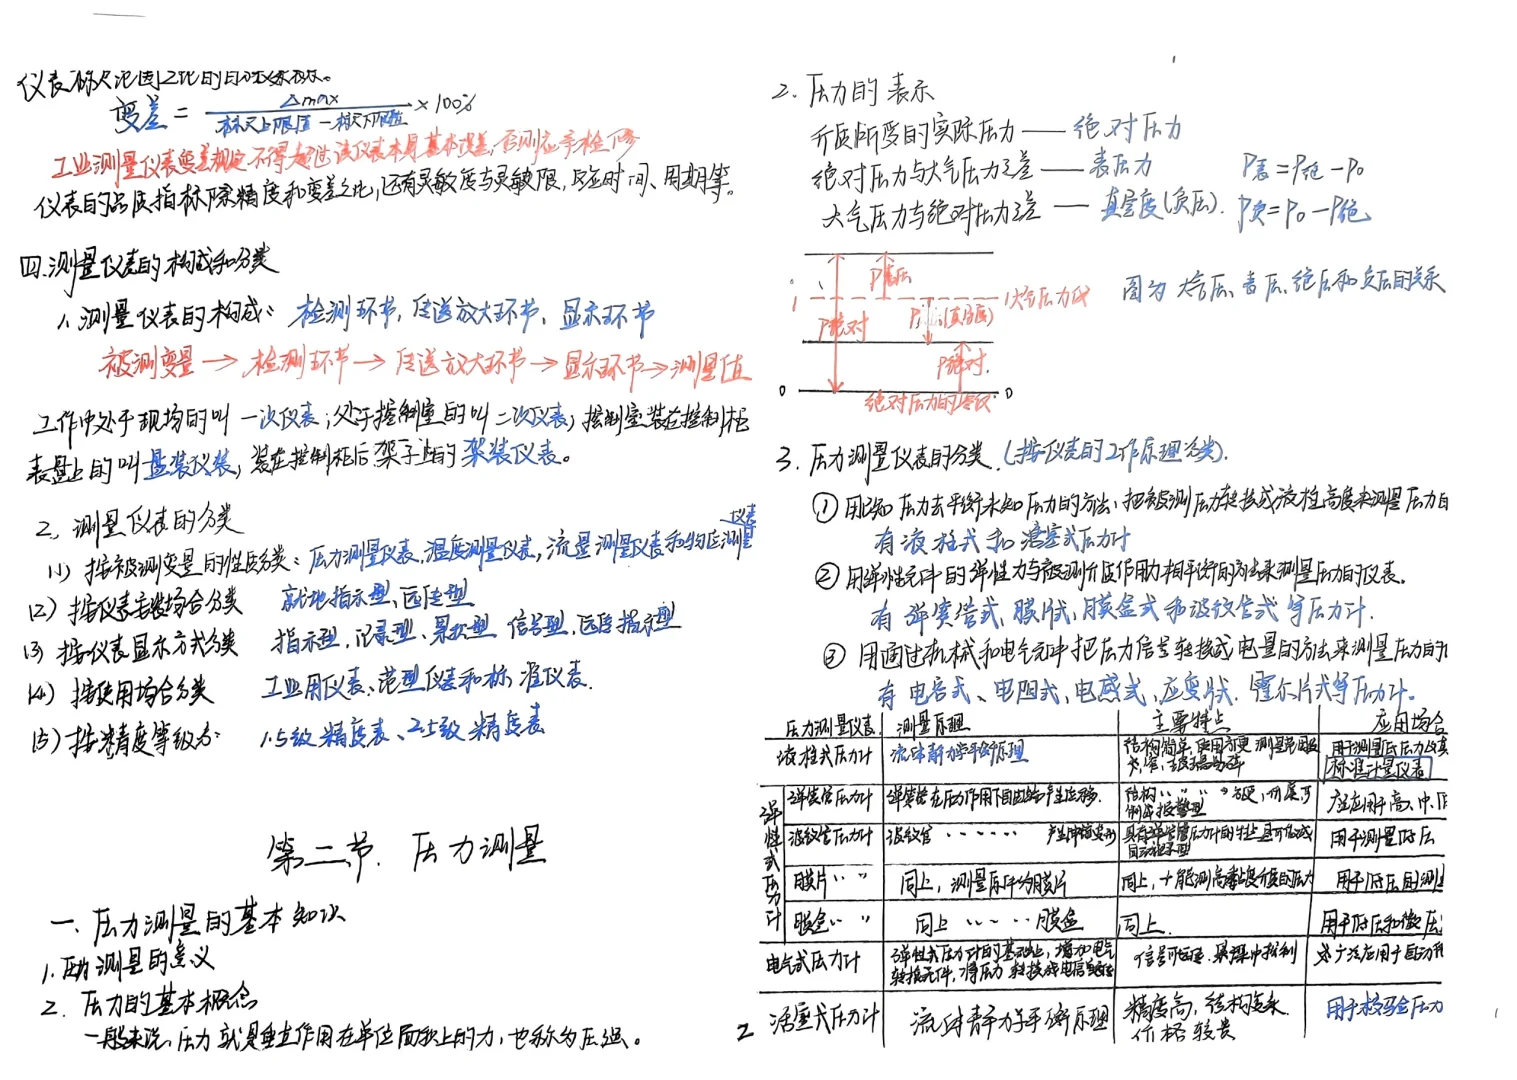 变差 = Δmax / 标尺上限值 - 标尺下限值 × 100%
工业测量仪表变差规定不得超过该仪表本身基本误差,否则应予检修
仪表的品质指标除精度和变差之外,还有灵敏度与灵敏限,反应时间、周期等。
四.测量仪表的构成和分类
1.测量仪表的构成: 检测环节,传送放大环节、显示环节
被测变量→检测环节→传送放大环节→显示环节→测量值
工作中处于现场的叫一次仪表;处于控制室的叫二次仪表;控制室装在控制柜
表盘上的叫盘装仪表,装在控制柜后架子上的架装仪表。
2, 测量仪表的分类
仪表
(1) 按被测变量的性质分类:压力测量仪表、温度测量仪表,流量测量仪表和物位测量
(2) 按仪表安装场合分类 就地指示型、远传型
(3) 按仪表显示方式分类 指示型,记录型、累积型 信号型,远传指示型
(4) 按使用场合分类 工业用仪表、范型仪表和标准仪表.
(5) 按精度等级分: 1.5级精度表、2.5级精度表
第二节. 压力测量
一.压力测量的基本知识
1.压力测量的意义
2.压力的基本概念
一般来说,压力就是垂直作用在单位面积上的力,也称为压强。
2. 压力的表示
介质所受的实际压力——绝对压力
绝对压力与大气压力之差——表压力 P表=P绝-P0
大气压力与绝对压力之差——真空度(负压). P负=P0-P绝
P表压
大气压力线
图为大气压、表压、绝压和负压的关系
P绝对
(真空度)
P绝对.
0 0
绝对压力的零线
3. 压力测量仪表的分类.(按仪表的工作原理分类).
① 用已知压力去平衡未知压力的方法,把被测压力转换成液柱高度来测量压力的
有液柱式和活塞式压力计
② 用弹性元件的弹性力与被测介质作用力相平衡的方法来测量压力的仪表。
有弹簧管式,膜片式,膜盒式和波纹管式等压力计.
③ 用通过机械和电气元件把压力信号转换成电量的方法来测量压力的
有电容式、电阻式,电感式,应变片式.霍尔片式等压力计。
压力测量仪表 测量原理 主要特点 应用场合
液柱式压力计 流体静力学平衡原理 结构简单,使用方便 测量范围 用于测量低压力及真
标准计量仪表
弹性式压力计
弹簧管压力计 弹簧管在压力作用下自由端产生位移. 结构〃〃〃方便, 应用于高、中、低
波纹管压力计 波纹管 〃〃〃〃 产生伸缩变形 具有弹簧管压力计的特点且可做成自动记录型 用于测量低压
膜片〃〃 同上,测量元件为膜片 同上,+能测高黏度介质的压力 用于低压的测量
膜盒〃〃 同上〃〃〃膜盒 同上. 用于低压和微压
电气式压力计 弹性式压力计的基础上,增加电气转换元件,将压力转换成电信号 信号可远传,易集中控制 广泛应用于自动
活塞式压力计 流体静力学平衡原理 精度高,结构复杂.价格较贵 用于校验压力
2